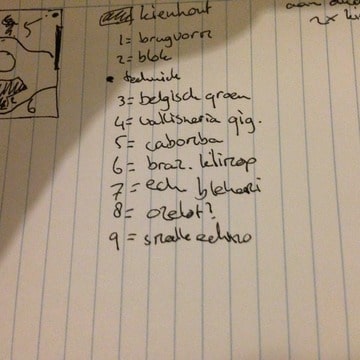 5
6
aan
2x
kienhout
1 = brugvorm
2 = blok
• techniek
3 = belgisch groen
4 = vallisneria gig.
5 = cabomba
6 = braz. klimop
7 = ech bleheri
8 = ozelot?
9 = smalle echino